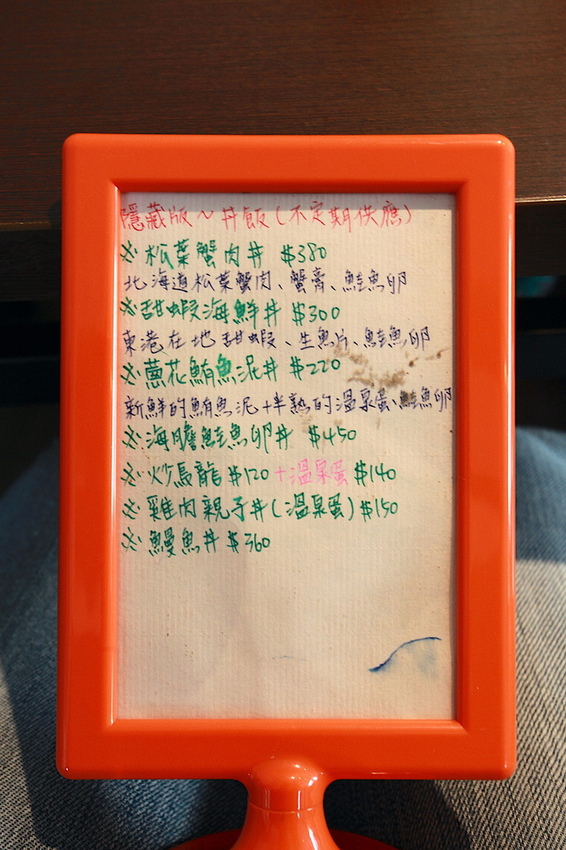 隱藏版~丼飯(不定期供應)
※松葉蟹肉丼 $380
北海道松葉蟹肉、蟹膏、鮭魚卵
※甜蝦海鮮丼 $300
東港在地甜蝦、生魚片、鮭魚卵
※蔥花鮪魚泥丼 $220
新鮮的鮪魚泥+半熟的溫泉蛋、鮭魚卵
※海膽鮭魚卵丼 $450
※炒烏龍 $120 +溫泉蛋 $140
※雞肉親子丼(溫泉蛋) $150
※鰻魚丼 $360